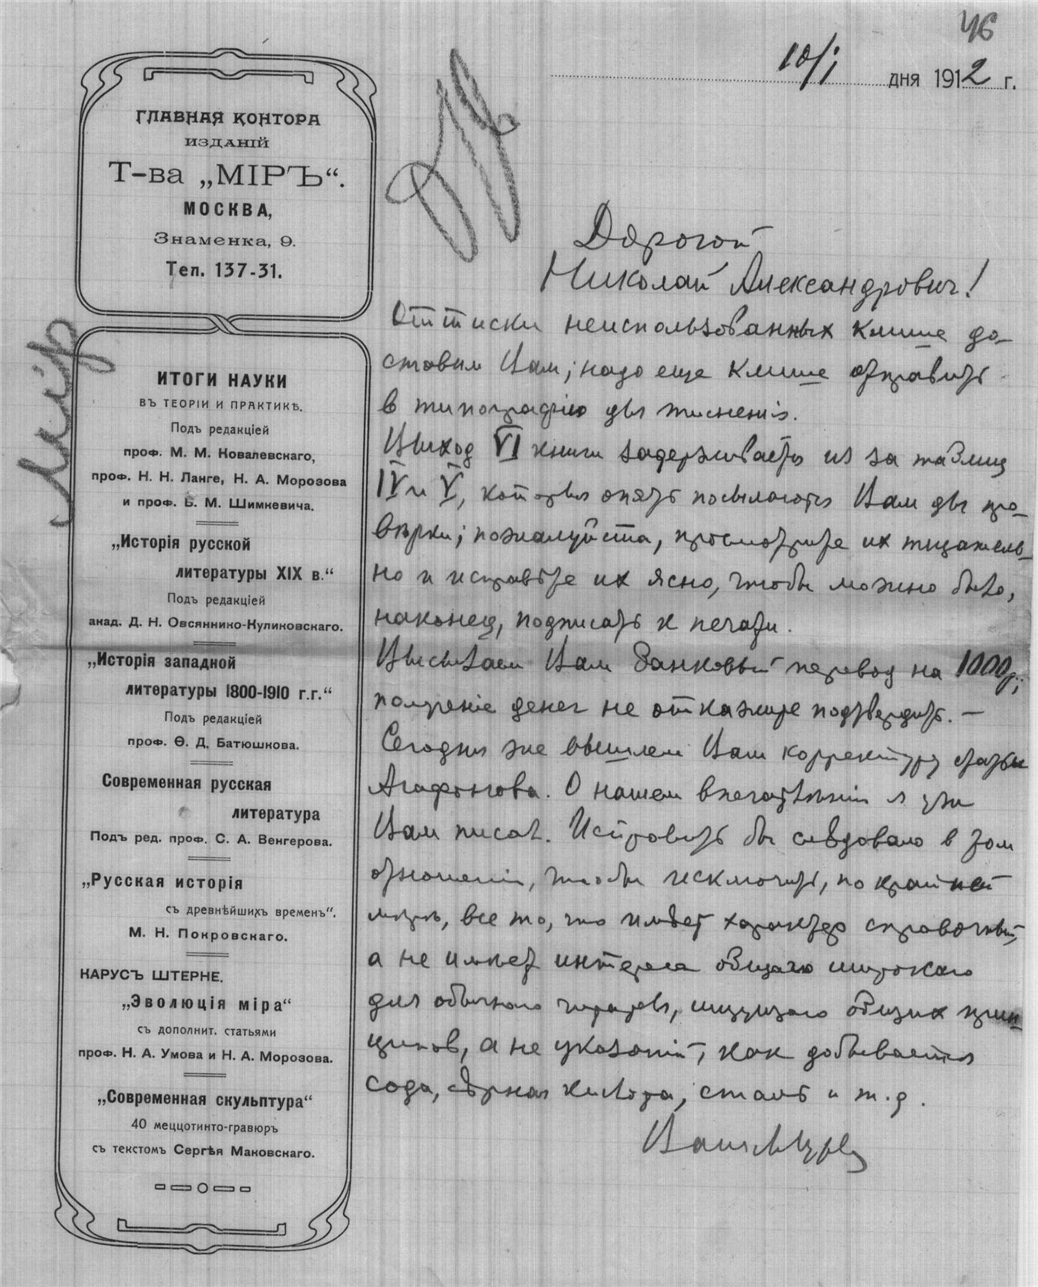 46
10/I дня 1912 г.
ГЛАВНАЯ КОНТОРА
ИЗДАНІЙ
Т-ва „МІРЪ“.
МОСКВА,
Знаменка, 9.
Тел. 137-31.
ИТОГИ НАУКИ
ВЪ ТЕОРІИ И ПРАКТИКѢ.
Подъ редакціей
проф. М. М. Ковалевскаго,
проф. Н. Н. Ланге, Н. А. Морозова
и проф. В. М. Шимкевича.
„Исторія русской
литературы XIX в.“
Подъ редакціей
акад. Д. Н. Овсянико-Куликовскаго.
„Исторія западной
литературы 1800-1910 г.г.“
Подъ редакціей
проф. Ѳ. Д. Батюшкова.
Современная русская
литература
Подъ ред. проф. С. А. Венгерова.
„Русская исторія
съ древнѣйшихъ временъ“.
М. Н. Покровскаго.
КАРУСЪ ШТЕРНЕ.
„Эволюція міра“
съ дополнит. статьями
проф. Н. А. Умова и Н. А. Морозова.
„Современная скульптура“
40 меццотинто-гравюръ
съ текстомъ Сергѣя Маковскаго.
Дорогой
Николай Александрович!
Оттиски неиспользованных клише до-
ставим Вам; надо еще клише отправить
в типографію для тисненія.
Выход VI книги задерживается из за таблиц
IV и V, которыя опять посылаются Вам для про-
вѣрки; пожалуйста, просмотрите их тщатель-
но и исправьте их ясно, чтобы можно было,
наконец, подписать к печати.
Высылаем Вам банковый перевод на 1000 р;
полученіе денег не откажите подтвердить. —
Сегодня же вышлем Вам корректуру статьи
Агафонова. О нашем впечатлѣніи я уже
Вам писал. Исправить бы слѣдовало в том
отношеніи, чтобы исключить, по крайней
мѣрѣ, все то, что имѣет характер справочный,
а не имѣет интереса общаго широкаго
для обычнаго читателя, ищущаго общих прин-
ципов, а не указаній, как добывается
сода, сѣрная кислота, сталь и т. д.
Ваш